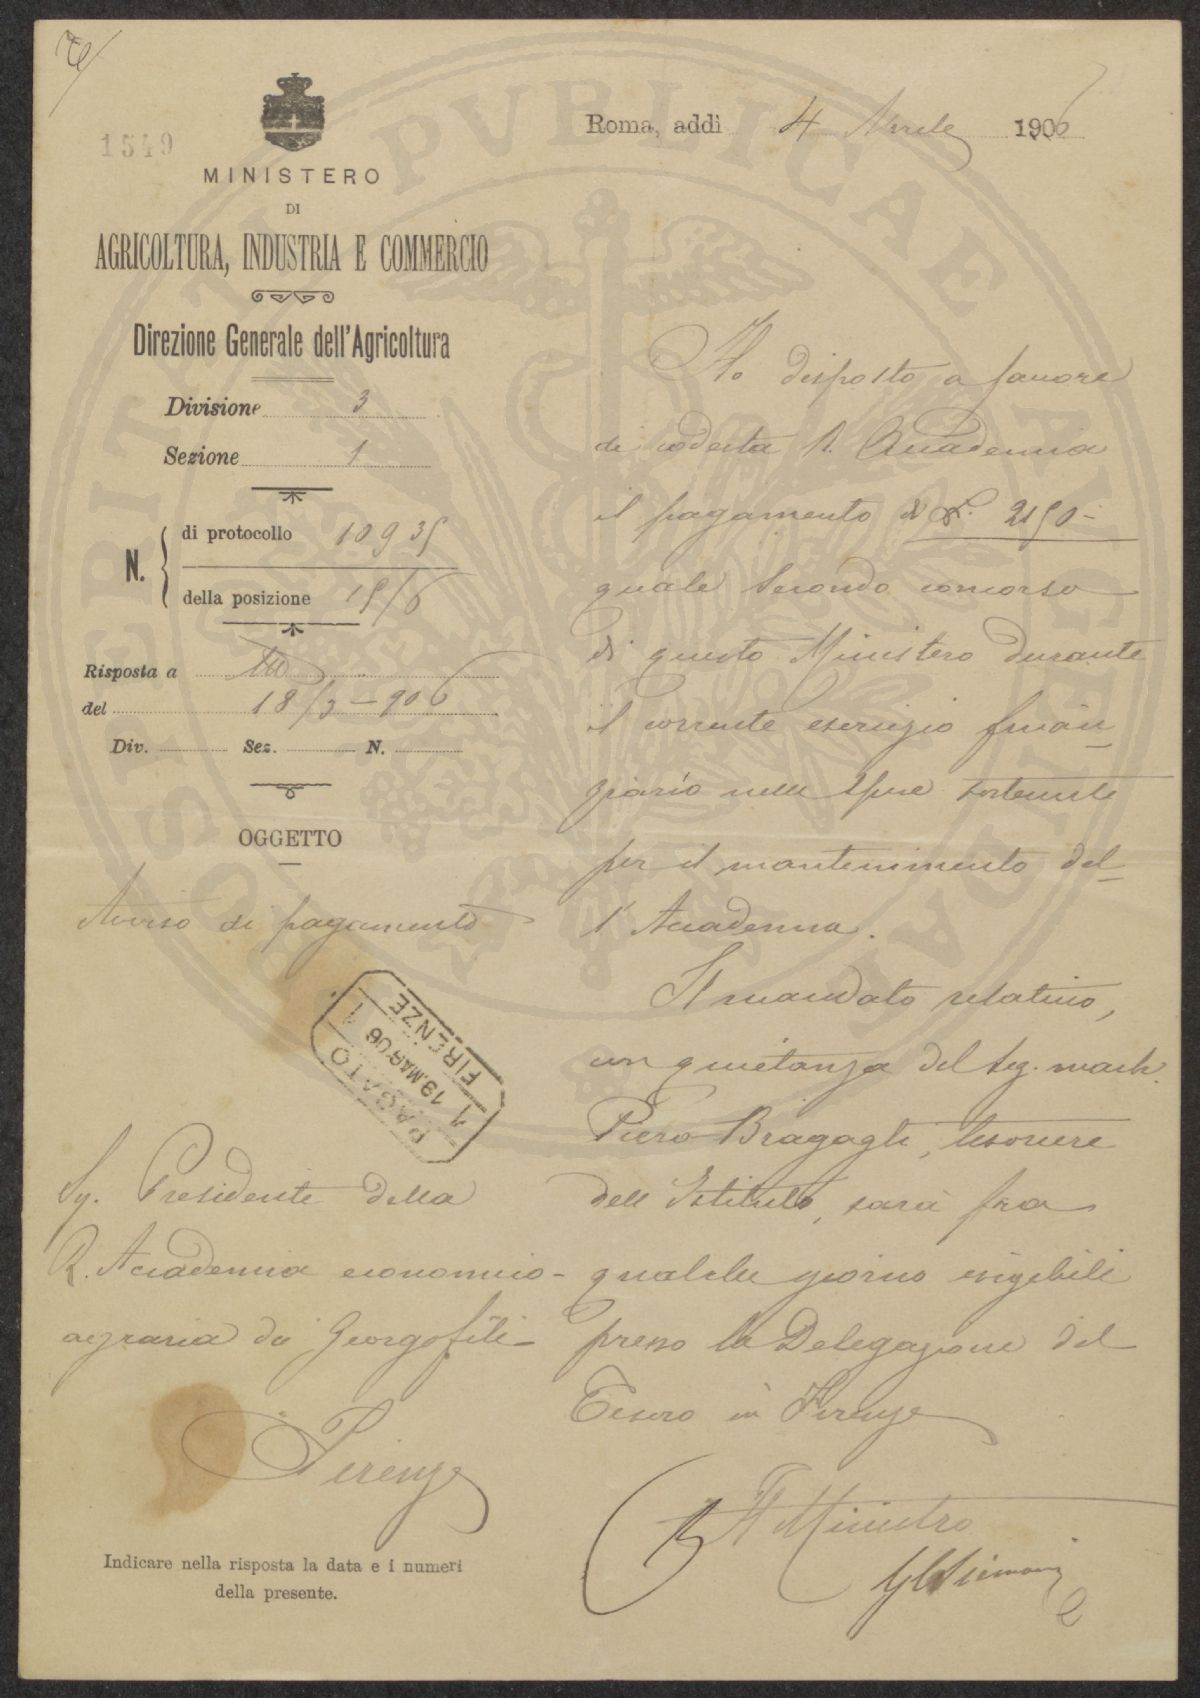 1549
MINISTERO
DI
AGRICOLTURA, INDUSTRIA E COMMERCIO
Direzione Generale dell'Agricoltura
Divisione 3
Sezione 1
N. di protocollo 10935
della posizione 15/6
Risposta a
del 18/3-906
Div. Sez. N.
OGGETTO
Avviso di pagamento
PAGATO
1 19.MAR06 1
FIRENZE
Sig. Presidente della
R. Accademia economico-
agraria dei Georgofili-
Firenze
Indicare nella risposta la data e i numeri
della presente.
Roma, addì 4 Aprile 1906
Ho disposto a favore
di codesta R. Accademia
il pagamento di L. 2150-
quale secondo concorso
di questo Ministero durante
il corrente esercizio finan-
ziario nelle spese sostenute
per il mantenimento del-
l'Accademia.
Il mandato relativo,
con quietanza del Sig. march.
Piero Bragagli, tesoriere
dell'Istituto, sarà fra
qualche giorno esigibile
presso la Delegazione del
Tesoro in Firenze
Il Ministro